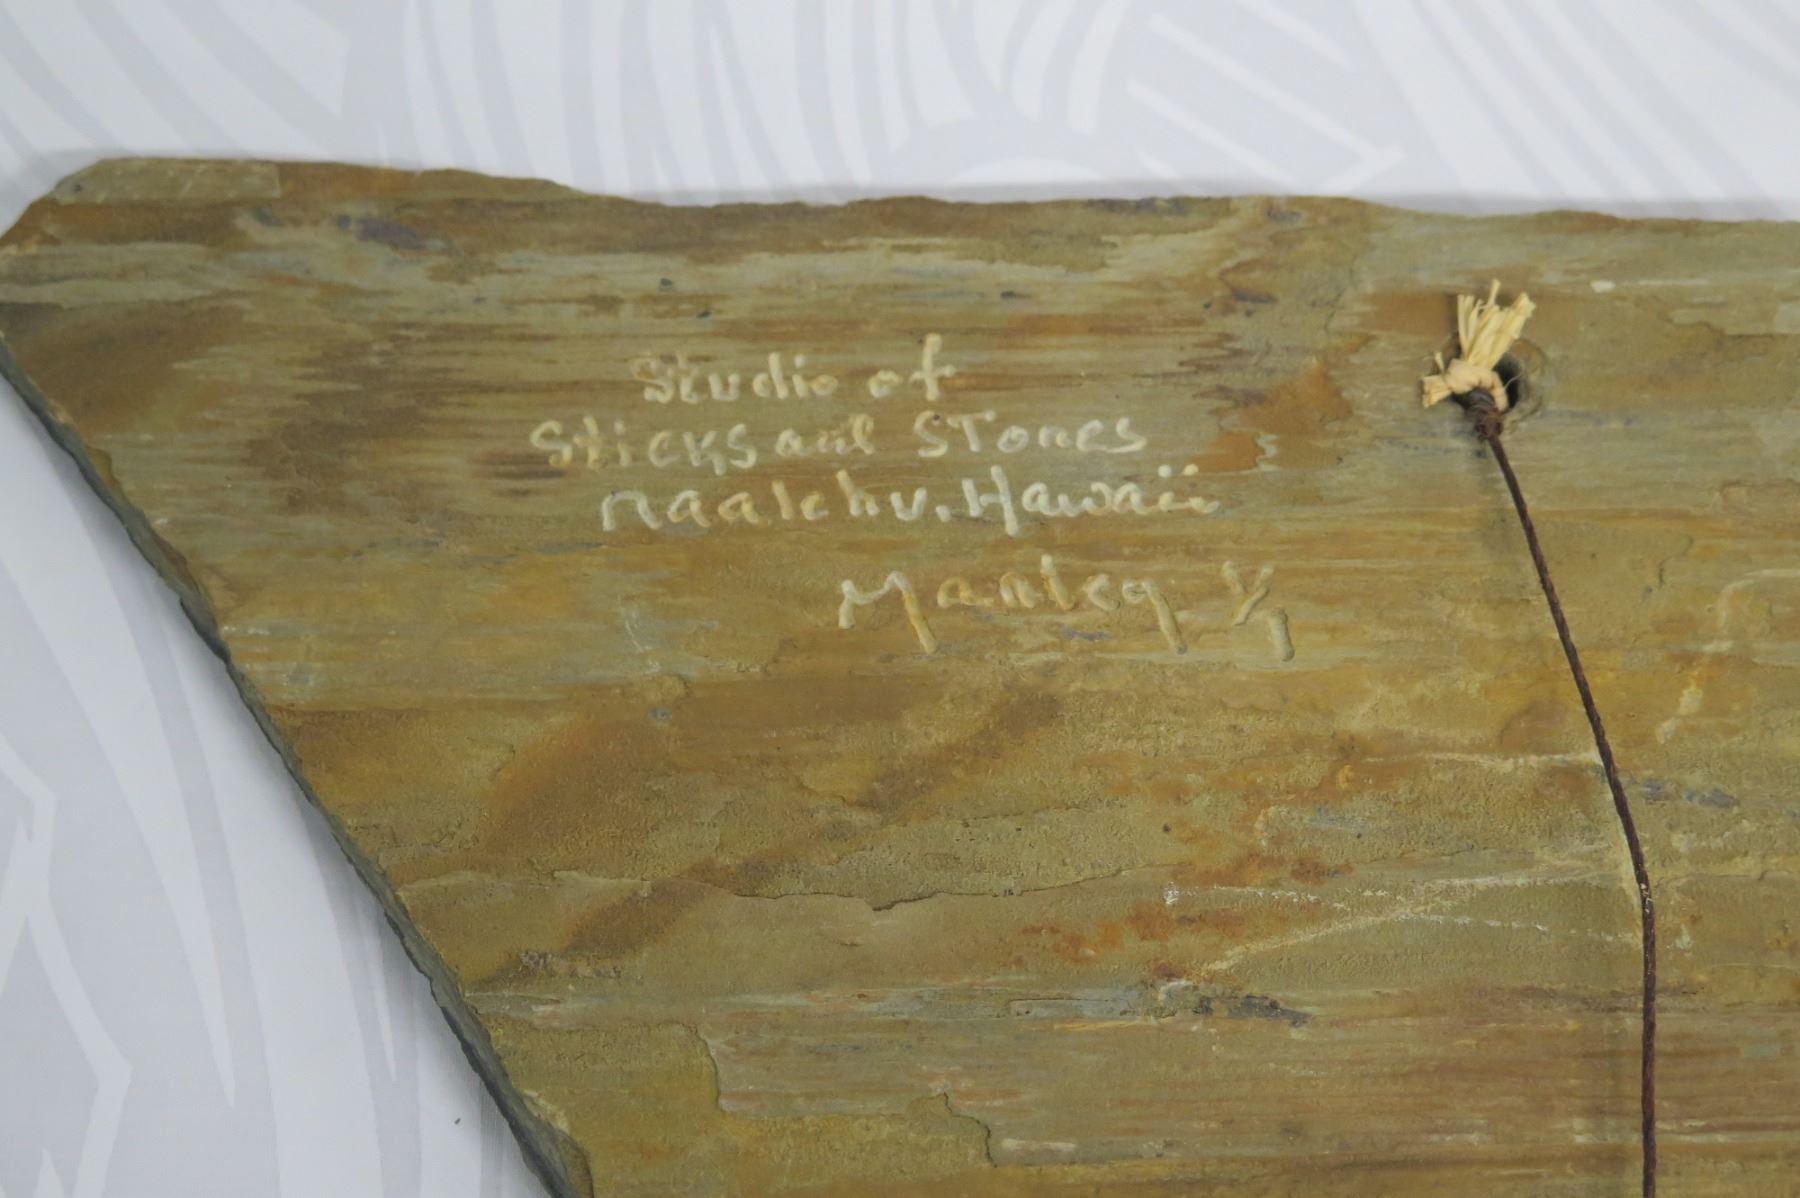 Studio of
Sticks and Stones
naalehu. Hawaii
Manley 1/1